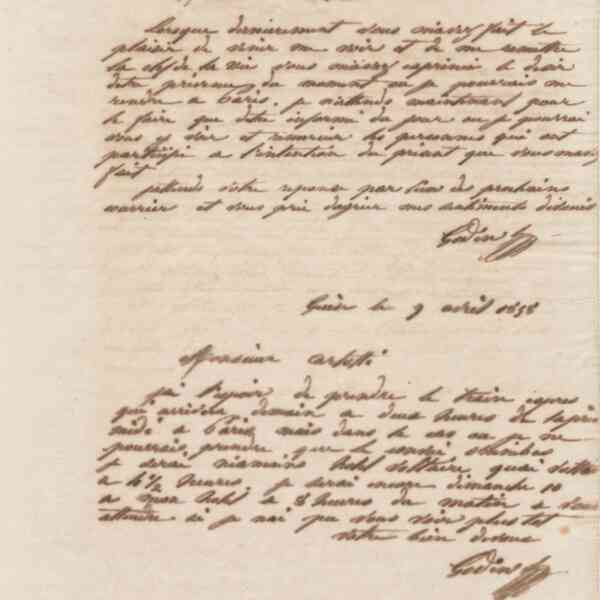 Lorsque dernierement vous m'avez fait le
plaisir de venir me voir et de me remettre
la clef de la vie vous m'avez exprimé le desir
d'etre prévenu du moment ou je pourrais me
rendre a Paris. je n'attends maintenant pour
le faire que d'etre informé du jour ou je pourrai
vous y voir et remercier les personnes qui ont
participé a l'intention du présent que vous m'avez
fait
j'attends votre reponse par l'un des prochains
courrier et vous prie d'agréer mes sentiments distingués
Godin
Guise le 9 avril 1858
Monsieur
j'ai l'espoir de prendre le train express
qui arrivera demain a deux heures de l'après
midi a Paris, mais dans le cas ou je ne
pourrais prendre que le convoi omnibus
je serai néanmoins hotel Voltaire, quai
a 4 ½ heures. je serai encore dimanche 10
a mon hotel a 8 heures du matin a vous
attendre si je n'ai pu vous voir plus tot
votre bien devoué
Godin